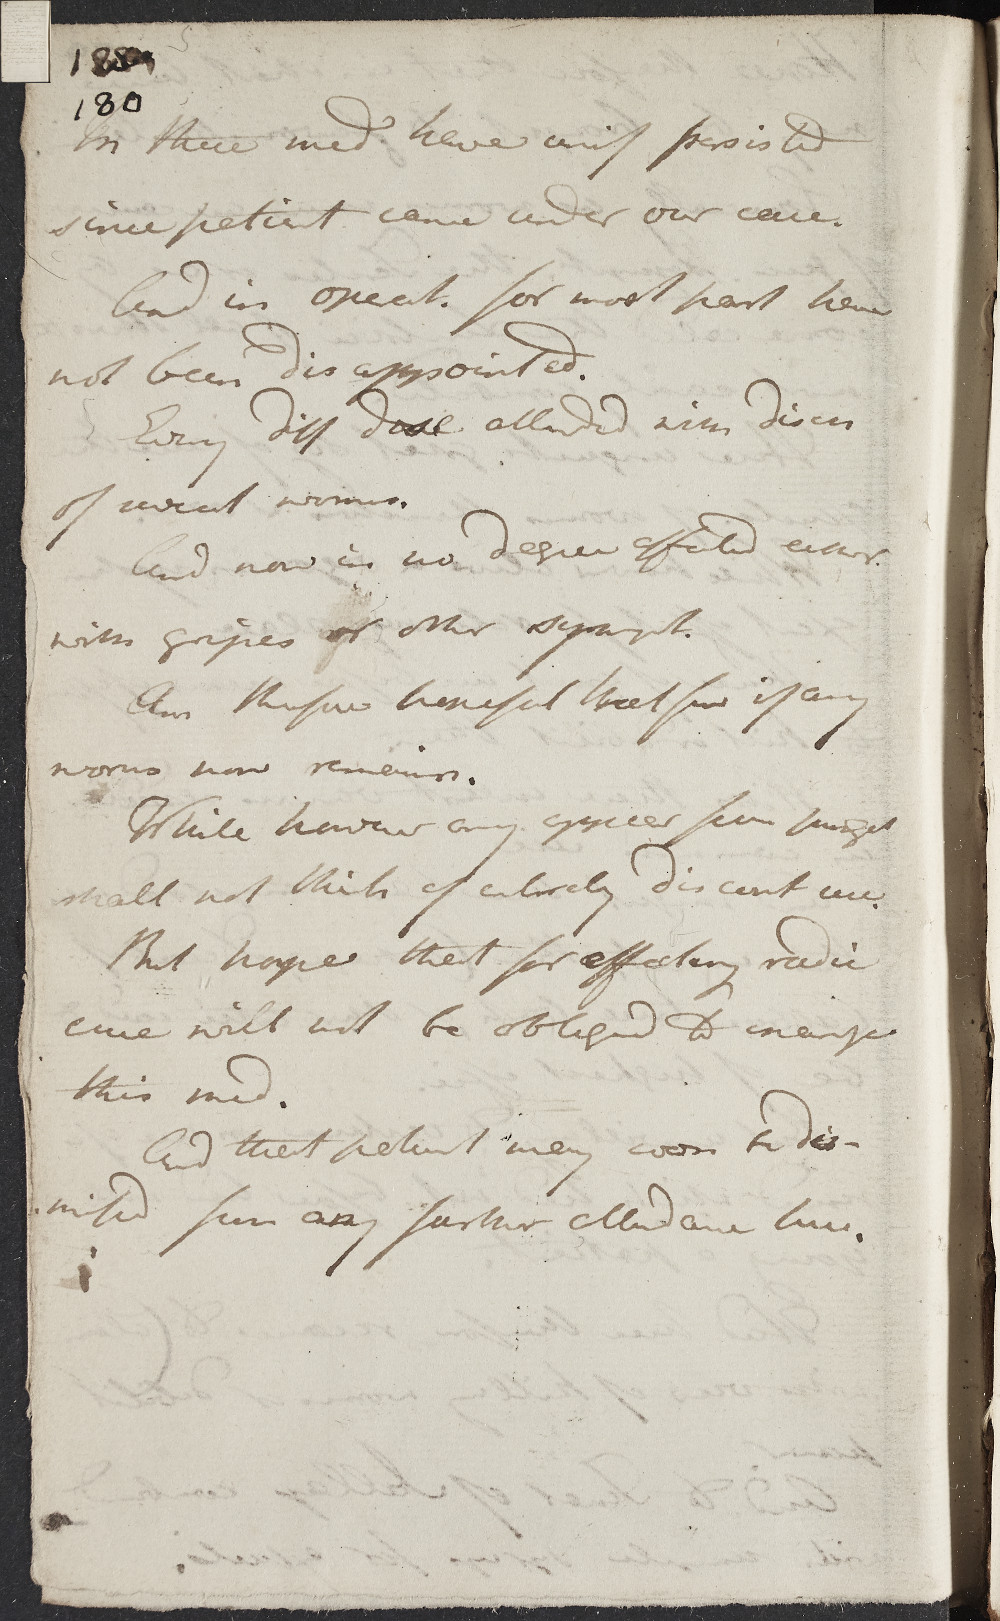 180
In these med. have unif persisted
since patient came under our care.
And in expect. for most part have
not been disappointed.
Every diff dose attended with disch
of several worms.
And now in no degree affected either
with gripes or other sympt.
Am therefore hopeful that few if any
worms now remain.
While however any appear from purges
shall not think of entirely discontinu.
But hope that for effecting radic
cure will not be obliged to change
this med.
And that patient may soon be dis-
missed from any further attendance here.